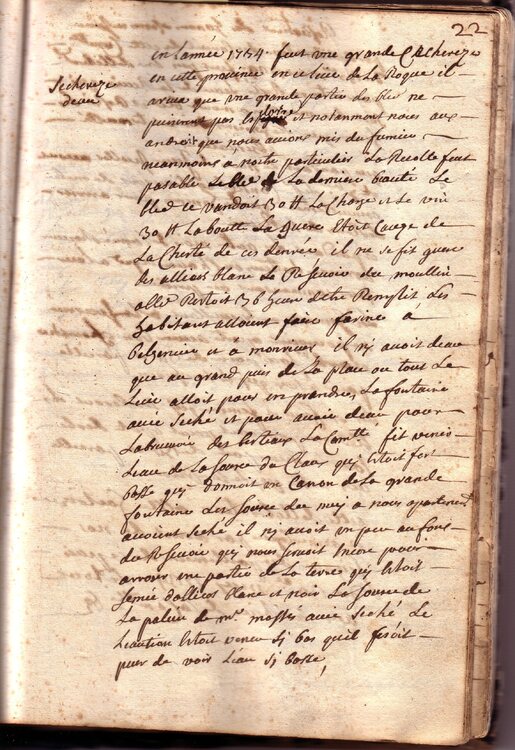 22
Sechereze
deau
en lannée 1754. feut une grande Sechereze
en cette province en ce lieu de La Roque il
ariva que une grande partie des bles ne
punirent pas et notanment nous aux
androit que nous avions mis du fumier
neanmoins a nostre particulier La Recolte feut
pasable Le ble de La derniere beauté Le
bled se vandoit 30 tt La Charge et Le vin
30 tt La boutte La guere Etoit Cauze de
La Cherté de ces denrée il ne se fit guere
des alliens blanc Le Reservoir du moullin
alle Restoit 36 heure detre Remplit Les
habitant alloient faire farine a
et a il nj avoit deau
que au grand puis de La place ou tous Le
Lieu alloit pour en prandre, La fontaine
avie seché et pour avoir deau pour
Labruvoir des bestiaux La Comtté fit venir
Leau de La source du Claux quj Etoit fort
basse quj donnoit un Canon de La grande
fontaine Les source du mej a nous apartenent
avoient seché il nj avoit un peu au fons
du Reservoir quj nous servoit Encore pour
arroser une partie de La terre quj Etoit
semée dalliens blanc et noir La source de
La palun de mr. mossés avie seché Le
Etoit venu sj bas quil fesoit
peur de voir Leau sj basse,